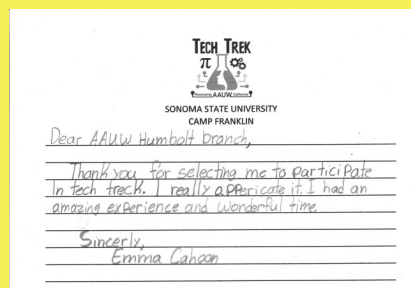 TECH TREK
π
Powered by AAUW California
SONOMA STATE UNIVERSITY
CAMP FRANKLIN
Dear AAUW Humbolt branch,
Thank you for selecting me to participate
In tech treck. I really appericate it. I had an
amazing experience and wonderful time.
Sincerly,
Emma Cahoon